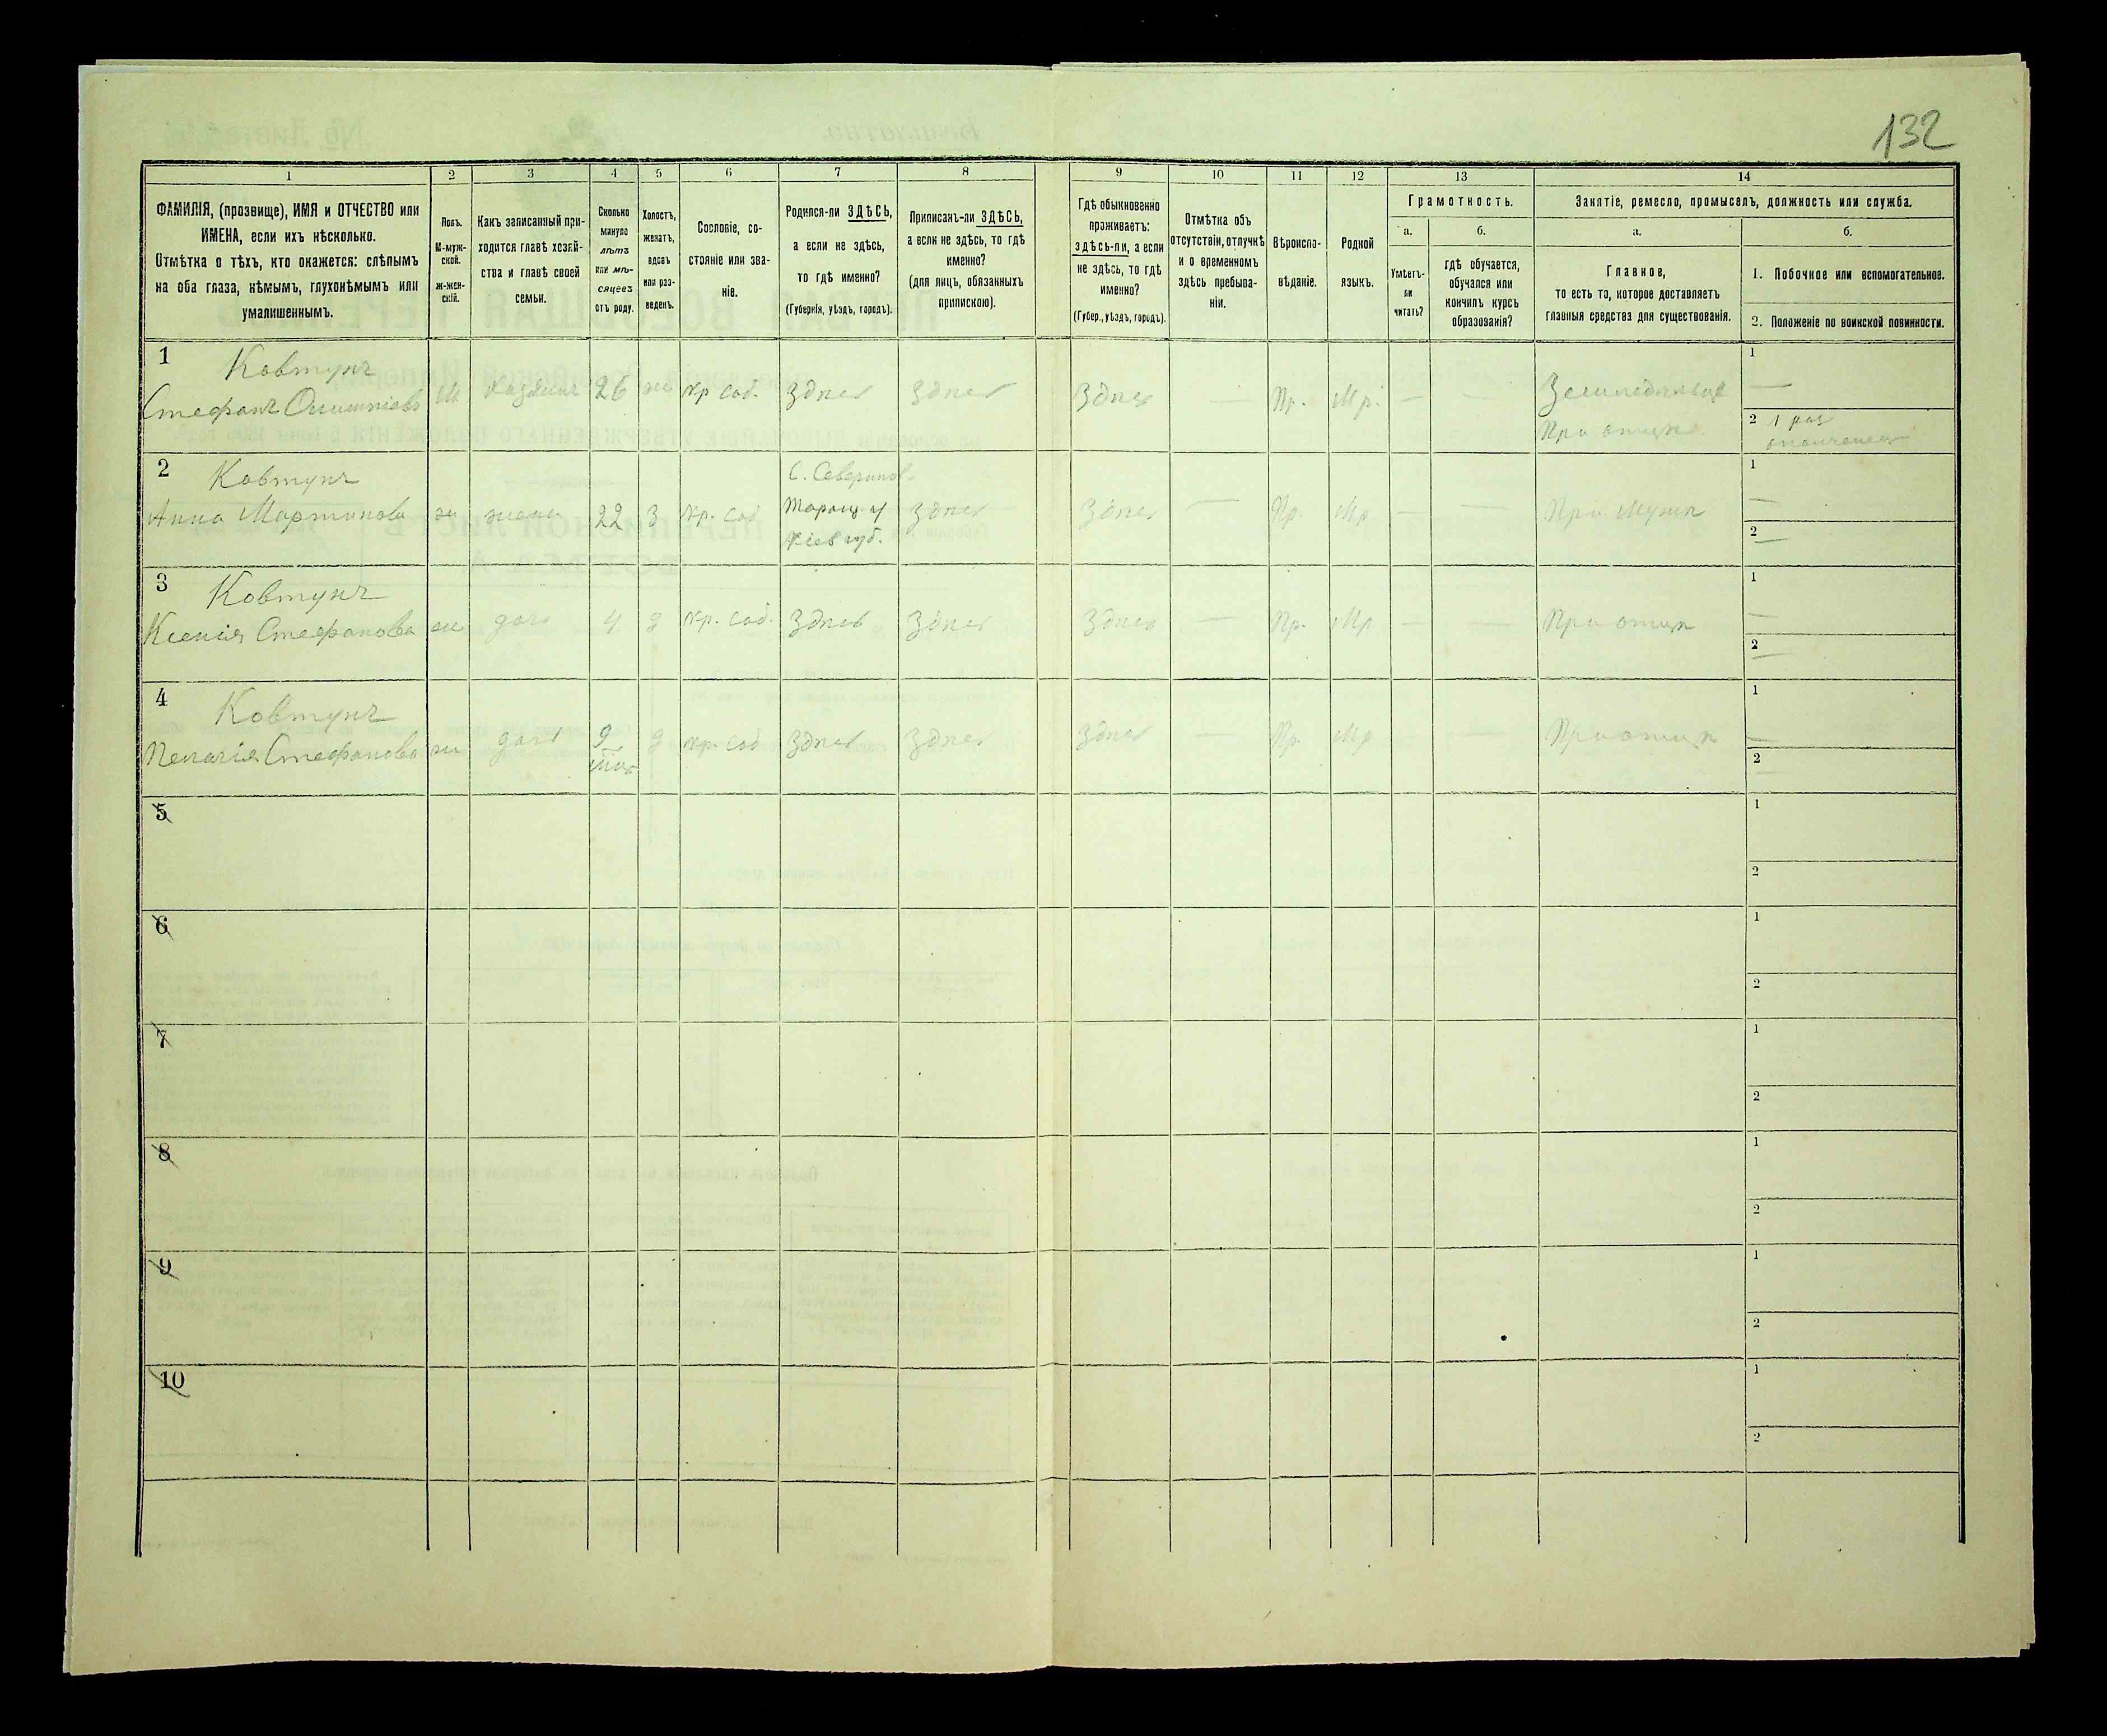 132
1
2
3
4
5
6
7
8
9
10
11
12
13
14
ФАМИЛІЯ, (прозвище), ИМЯ и ОТЧЕСТВО или
ИМЕНА, если ихъ нѣсколько.
Отмѣтка о тѣхъ, кто окажется: слѣпымъ
на оба глаза, нѣмымъ, глухонѣмымъ или
умалишеннымъ.
Полъ.
М-муж-
ской.
ж-жен-
скій.
Какъ записанный при-
ходится главѣ хозяй-
ства и главѣ своей
семьи.
Сколько
минуло
лѣтъ
или мѣ-
сяцевъ
отъ роду.
Холостъ,
женатъ,
вдовъ
или раз-
веденъ.
Сословіе, со-
стояніе или зва-
ніе.
Родился-ли ЗДѢСЬ,
а если не здѣсь,
то гдѣ именно?
(Губернія, уѣздъ, городъ).
Приписанъ-ли ЗДѢСЬ,
а если не здѣсь, то гдѣ
именно?
(для лицъ, обязанныхъ
припискою).
Гдѣ обыкновенно
проживаетъ:
здѣсь-ли, а если
не здѣсь, то гдѣ
именно?
(Губер., уѣздъ, городъ).
Отмѣтка объ
отсутствіи, отлучкѣ
и о временномъ
здѣсь пребыва-
ніи.
Вѣроиспо-
вѣданіе.
Родной
языкъ.
Грамотность.
а.
Умѣетъ-
ли
читать?
б.
гдѣ обучается,
обучался или
кончилъ курсъ
образованія?
Занятіе, ремесло, промыселъ, должность или служба.
а.
Главное,
то есть то, которое доставляетъ
главныя средства для существованія.
б.
1. Побочное или вспомогательное.
2. Положеніе по воинской повинности.
1 Ковтунъ
Стефанъ М хозяинъ 26 ж кр. соб. Здѣсь Здѣсь Здѣсь — Пр. Мр. — —
При отцѣ
1 —
2 1 раз
2 Ковтунъ
Анна Мартинова ж жена 22 З кр. соб С. Северинов.
Таращ. у
Кіев губ. Здѣсь Здѣсь — Пр. Мр — — При мужѣ
1 —
2 —
3 Ковтунъ
Ксенія Стефанова ж дочь 4 д кр. соб. Здѣсь Здѣсь Здѣсь — Пр. Мр — — При отцѣ
1 —
2 —
4 Ковтунъ
Пелагія Стефанова ж дочь 9
мѣс. д кр. соб Здѣсь Здѣсь Здѣсь — Пр. Мр — — При отцѣ
1 —
2 —
5
1
2
6
1
2
7
1
2
8
1
2
9
1
2
10
1
2